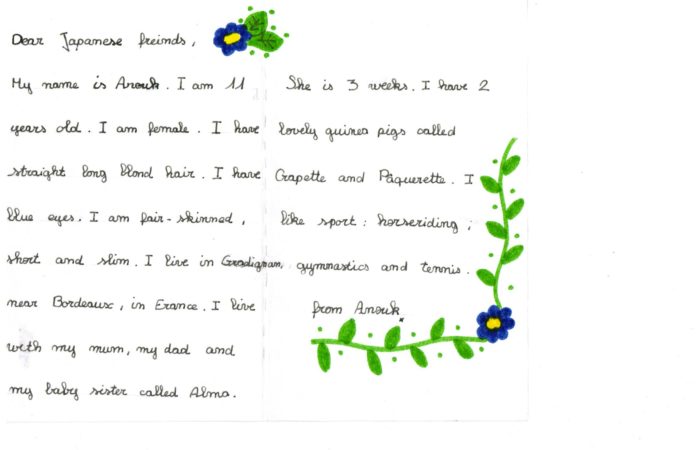 Dear Japanese freinds,
My name is Anouk. I am 11
years old. I am female. I have
straight long blond hair. I have
blue eyes. I am fair-skinned,
short and slim. I live in Gradignan,
near Bordeaux, in France. I live
with my mum, my dad and
my baby sister called Alma.
She is 3 weeks. I have 2
lovely guinea pigs called
Grapette and Pâquerette. I
like sport: horseriding,
gymnastics and tennis.
from Anouk.